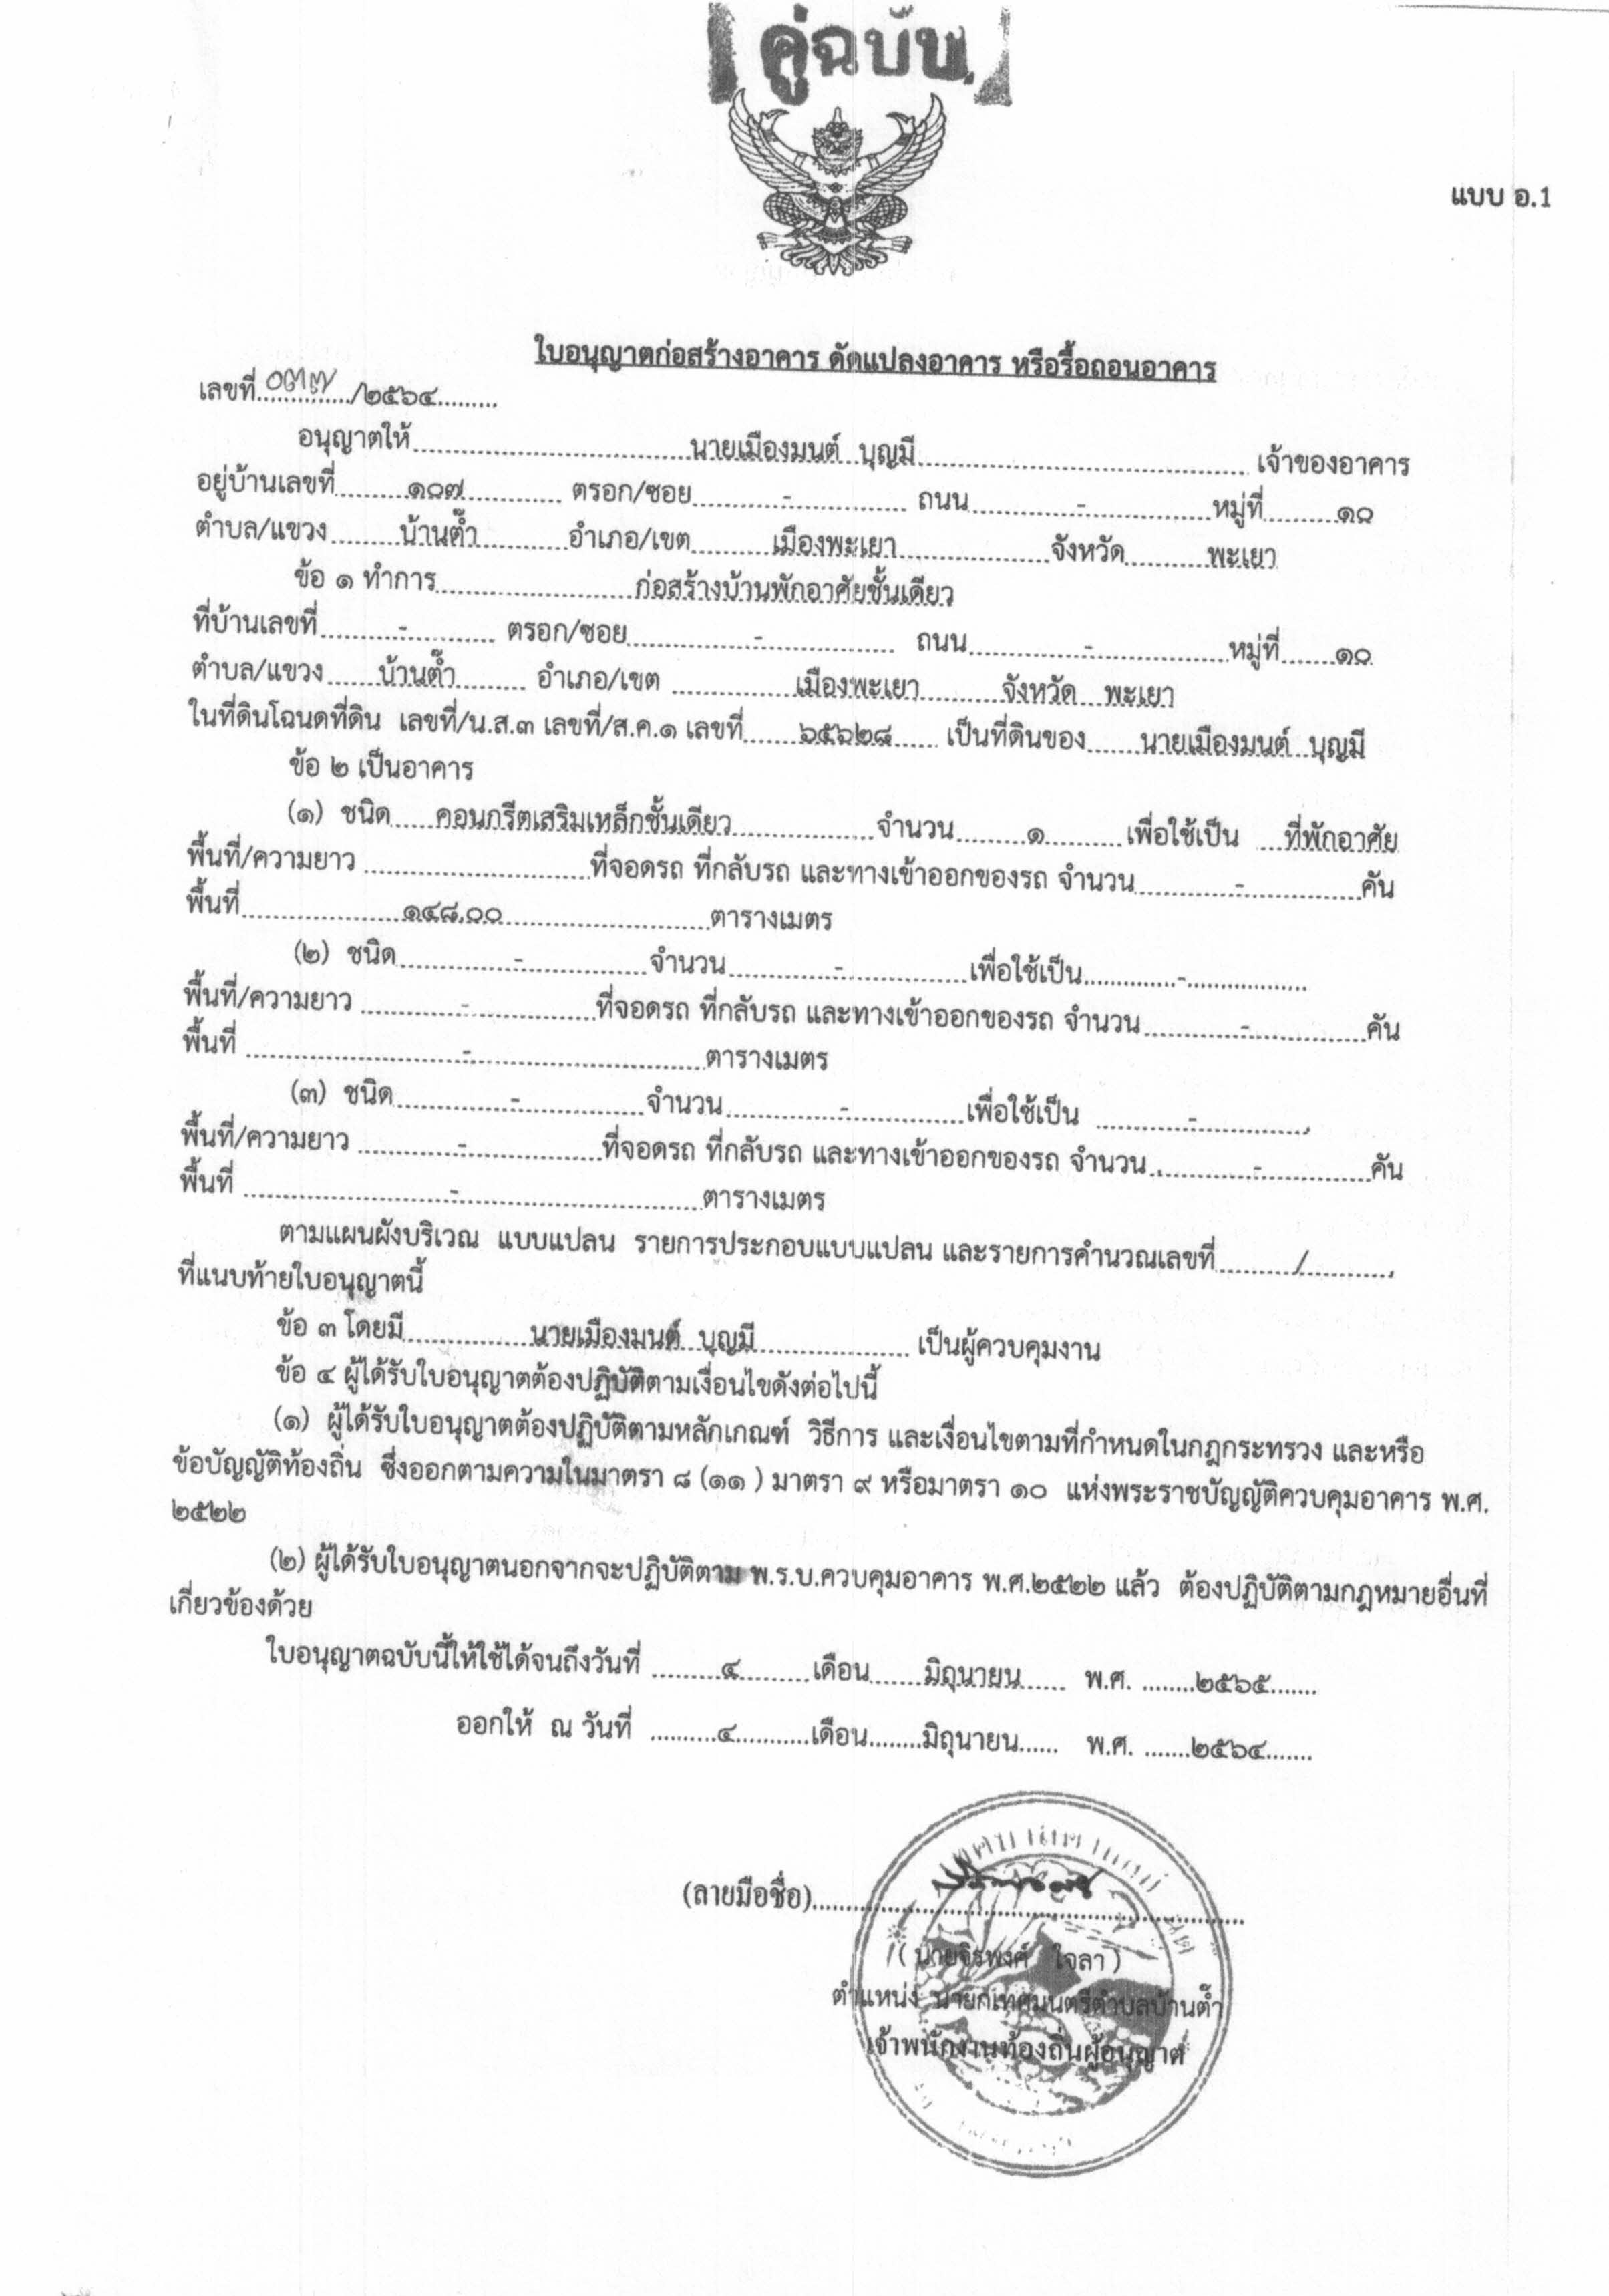 คู่ฉบับ
แบบ อ.1
ใบอนุญาตก่อสร้างอาคาร ดัดแปลงอาคาร หรือรื้อถอนอาคาร
เลขที่ ๐๓๗/๒๕๖๔
อนุญาตให้ นายเมืองมนต์ บุญมี เจ้าของอาคาร
อยู่บ้านเลขที่ ๑๐๗ ตรอก/ซอย - ถนน - หมู่ที่ ๑๐
ตำบล/แขวง บ้านต๊ำ อำเภอ/เขต เมืองพะเยา จังหวัด พะเยา
ข้อ ๑ ทำการ ก่อสร้างบ้านพักอาศัยชั้นเดียว
ที่บ้านเลขที่ - ตรอก/ซอย - ถนน - หมู่ที่ ๑๐
ตำบล/แขวง บ้านต๊ำ อำเภอ/เขต เมืองพะเยา จังหวัด พะเยา
ในที่ดินโฉนดที่ดิน เลขที่/น.ส.๓ เลขที่/ส.ค.๑ เลขที่ ๖๕๖๒๘ เป็นที่ดินของ นายเมืองมนต์ บุญมี
ข้อ ๒ เป็นอาคาร
(๑) ชนิด คอนกรีตเสริมเหล็กชั้นเดียว จำนวน ๑ เพื่อใช้เป็น ที่พักอาศัย
พื้นที่/ความยาว ที่จอดรถ ที่กลับรถ และทางเข้าออกของรถ จำนวน - คัน
พื้นที่ ๑๔๘.๐๐ ตารางเมตร
(๒) ชนิด - จำนวน - เพื่อใช้เป็น -
พื้นที่/ความยาว - ที่จอดรถ ที่กลับรถ และทางเข้าออกของรถ จำนวน - คัน
พื้นที่ - ตารางเมตร
(๓) ชนิด - จำนวน - เพื่อใช้เป็น -
พื้นที่/ความยาว - ที่จอดรถ ที่กลับรถ และทางเข้าออกของรถ จำนวน - คัน
พื้นที่ - ตารางเมตร
ตามแผนผังบริเวณ แบบแปลน รายการประกอบแบบแปลน และรายการคำนวณเลขที่ /
ที่แนบท้ายใบอนุญาตนี้
ข้อ ๓ โดยมี นายเมืองมนต์ บุญมี เป็นผู้ควบคุมงาน
ข้อ ๔ ผู้ได้รับใบอนุญาตต้องปฏิบัติตามเงื่อนไขดังต่อไปนี้
(๑) ผู้ได้รับใบอนุญาตต้องปฏิบัติตามหลักเกณฑ์ วิธีการ และเงื่อนไขตามที่กำหนดในกฎกระทรวง และหรือ
ข้อบัญญัติท้องถิ่น ซึ่งออกตามความในมาตรา ๘ (๑๑ ) มาตรา ๙ หรือมาตรา ๑๐ แห่งพระราชบัญญัติควบคุมอาคาร พ.ศ.
๒๕๒๒
(๒) ผู้ได้รับใบอนุญาตนอกจากจะปฏิบัติตาม พ.ร.บ.ควบคุมอาคาร พ.ศ.๒๕๒๒ แล้ว ต้องปฏิบัติตามกฎหมายอื่นที่
เกี่ยวข้องด้วย
ใบอนุญาตฉบับนี้ให้ใช้ได้จนถึงวันที่ ๔ เดือน มิถุนายน พ.ศ. ๒๕๖๕
ออกให้ ณ วันที่ ๔ เดือน มิถุนายน พ.ศ. ๒๕๖๔
(ลายมือชื่อ)
( นายจิรพงศ์ ใจลา )
ตำแหน่ง นายกเทศมนตรีตำบลบ้านต๊ำ
เจ้าพนักงานท้องถิ่นผู้อนุญาต